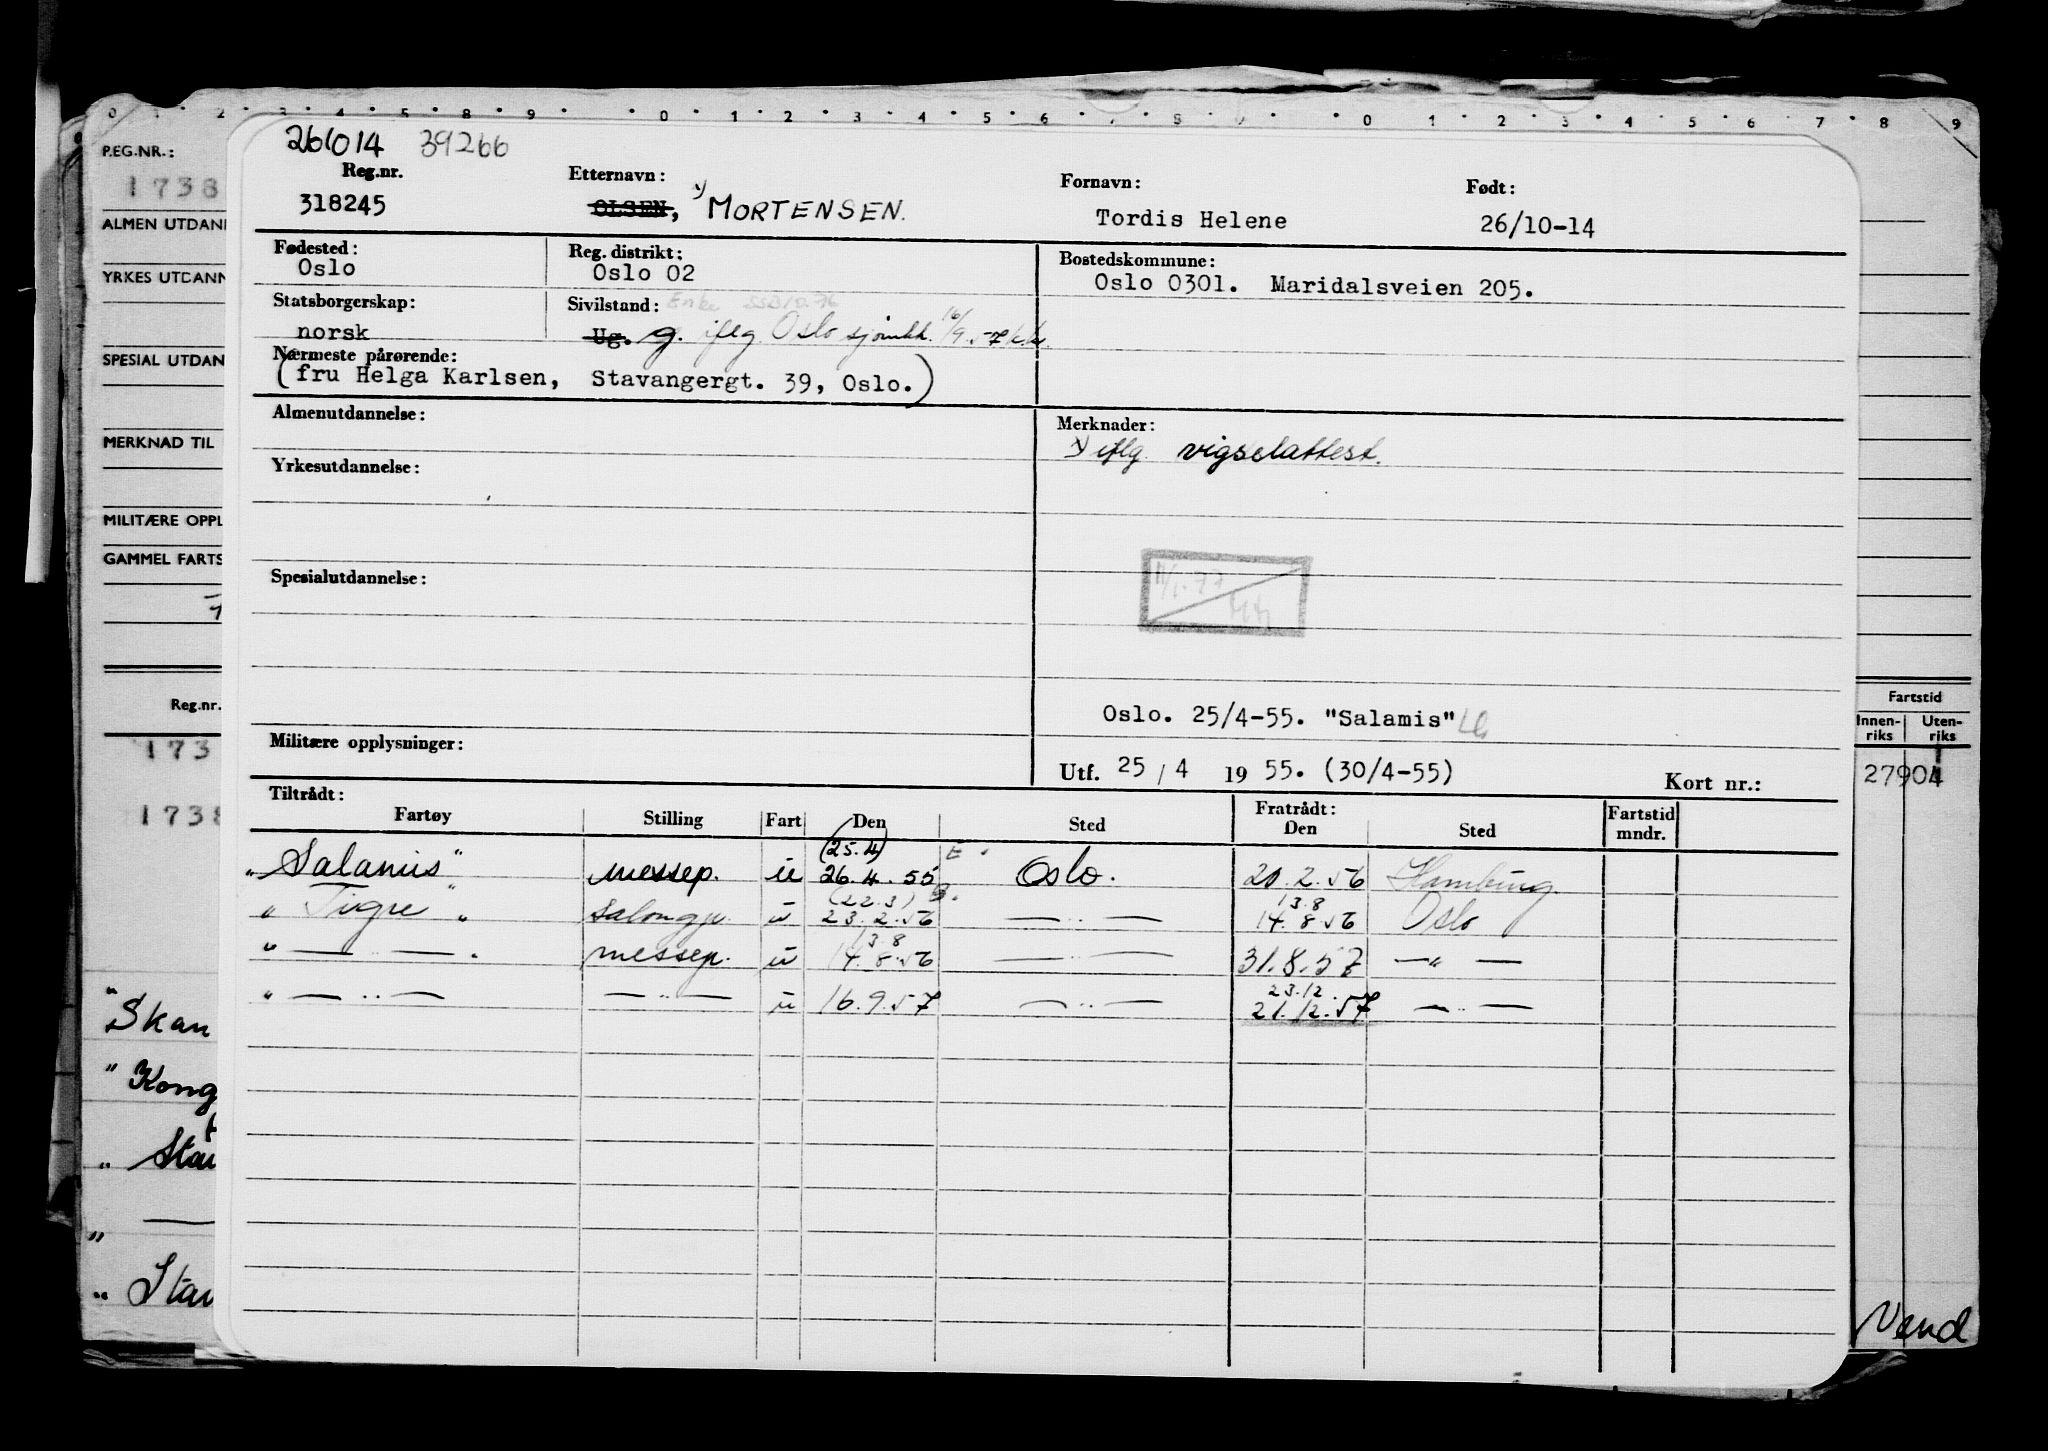 0 1 2 3 4 5 8 9 0 1 2 3 4 5 6 7 8 9 0 1 2 3 4 5 6 7 8 9
261014 39266
P.EG.NR.:
1738
Reg.nr. Etternavn: Fornavn: Født:
318245 OLSEN, x) MORTENSEN. Tordis Helene 26/10-14
ALMEN UTDANN
Fødested: Reg. distrikt: Bostedskommune:
Oslo Oslo 02 Oslo 0301. Maridalsveien 205.
YRKES UTDANN
Statsborgerskap: Sivilstand: Enke
norsk Ug. g. iflg. Oslo sjømktr. 16/9.57
SPESIAL UTDAN
Nærmeste pårørende:
(fru Helga Karlsen, Stavangergt. 39, Oslo.)
Almenutdannelse: Merknader:
MERKNAD TIL
x) iflg. vigselattest.
Yrkesutdannelse:
MILITÆRE OPPL
GAMMEL FARTS
Spesialutdannelse:
Reg.nr. Fartstid
Innen-riks Uten-riks
Oslo. 25/4-55. "Salamis"
Militære opplysninger:
173
27904
Utf. 25 / 4 19 55. (30/4-55) Kort nr.:
Tiltrådt: Fratrådt:
1738
Fartøy Stilling Fart Den Sted Den Sted Fartstid mndr.
(25.4)
"Salamis" messep. u 26.4.55 Oslo. 20.2.56 Hamburg.
(22.3) 13.8
" Tigre " salongp. u 23.2.56 — " — 14.8.56 Oslo
13.8
" — " — " messep. u 14.8.56 — " — 31.8.57 — " —
23.12.
" — " — — " — u 16.9.57 — " — 21.12.57 — " —
"Skan
"Kong
" Star
"
" Star
Vend